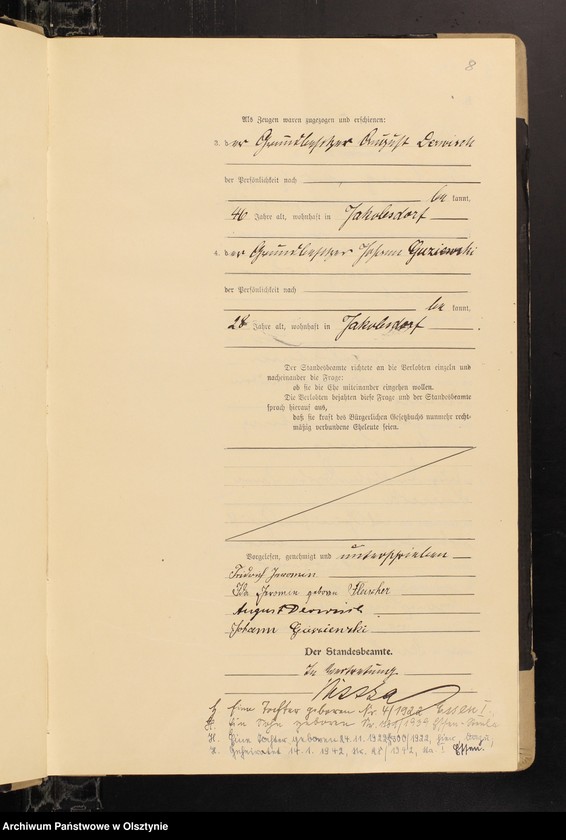 8
Als Zeugen waren zugezogen und erschienen:
3. der Grundbesitzer August Derwisch
der Persönlichkeit nach
be kannt,
46 Jahre alt, wohnhaft in Jakobsdorf
4. der Grundbesitzer Johann Guziewski
der Persönlichkeit nach
be kannt,
28 Jahre alt, wohnhaft in Jakobsdorf
Der Standesbeamte richtete an die Verlobten einzeln und
nacheinander die Frage:
ob sie die Ehe miteinander eingehen wollen.
Die Verlobten bejahten diese Frage und der Standesbeamte
sprach hierauf aus,
daß sie kraft des Bürgerlichen Gesetzbuchs nunmehr recht-
mäßig verbundene Eheleute seien.
Vorgelesen, genehmigt und unterschrieben
Jeromin
Ida Jeromin geboren
August Derwisch
Johann Guziewski
Der Standesbeamte.
In Vertretung
Eine Tochter geboren Nr. 4/1922 Essen I.
Ein Sohn geboren Nr. Essen
H. Eine Tochter geboren 24.11.1922
H. Geheiratet 14.1.1942, Nr. Essen.
Archiwum Państwowe w Olsztynie